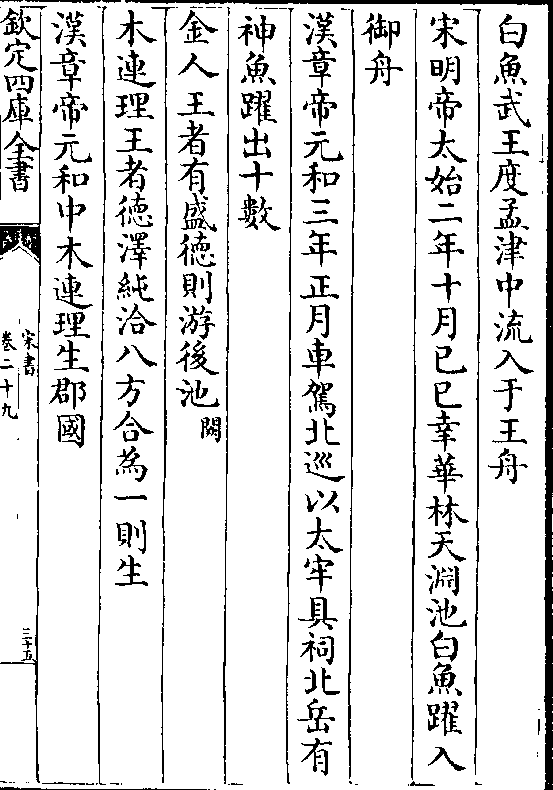 白魚武王度孟津中流入于王舟
宋明帝太始二年十月已巳幸華林天淵池白魚躍入
御舟
漢章帝元和三年正月車駕北巡以太牢具祠北岳有
神魚躍出十數
金人王者有盛德則游後池闕
木連理王者德澤純洽八方合為一則生
漢章帝元和中木連理生郡國
欽定四庫全書
宋書
卷二十九
三十五